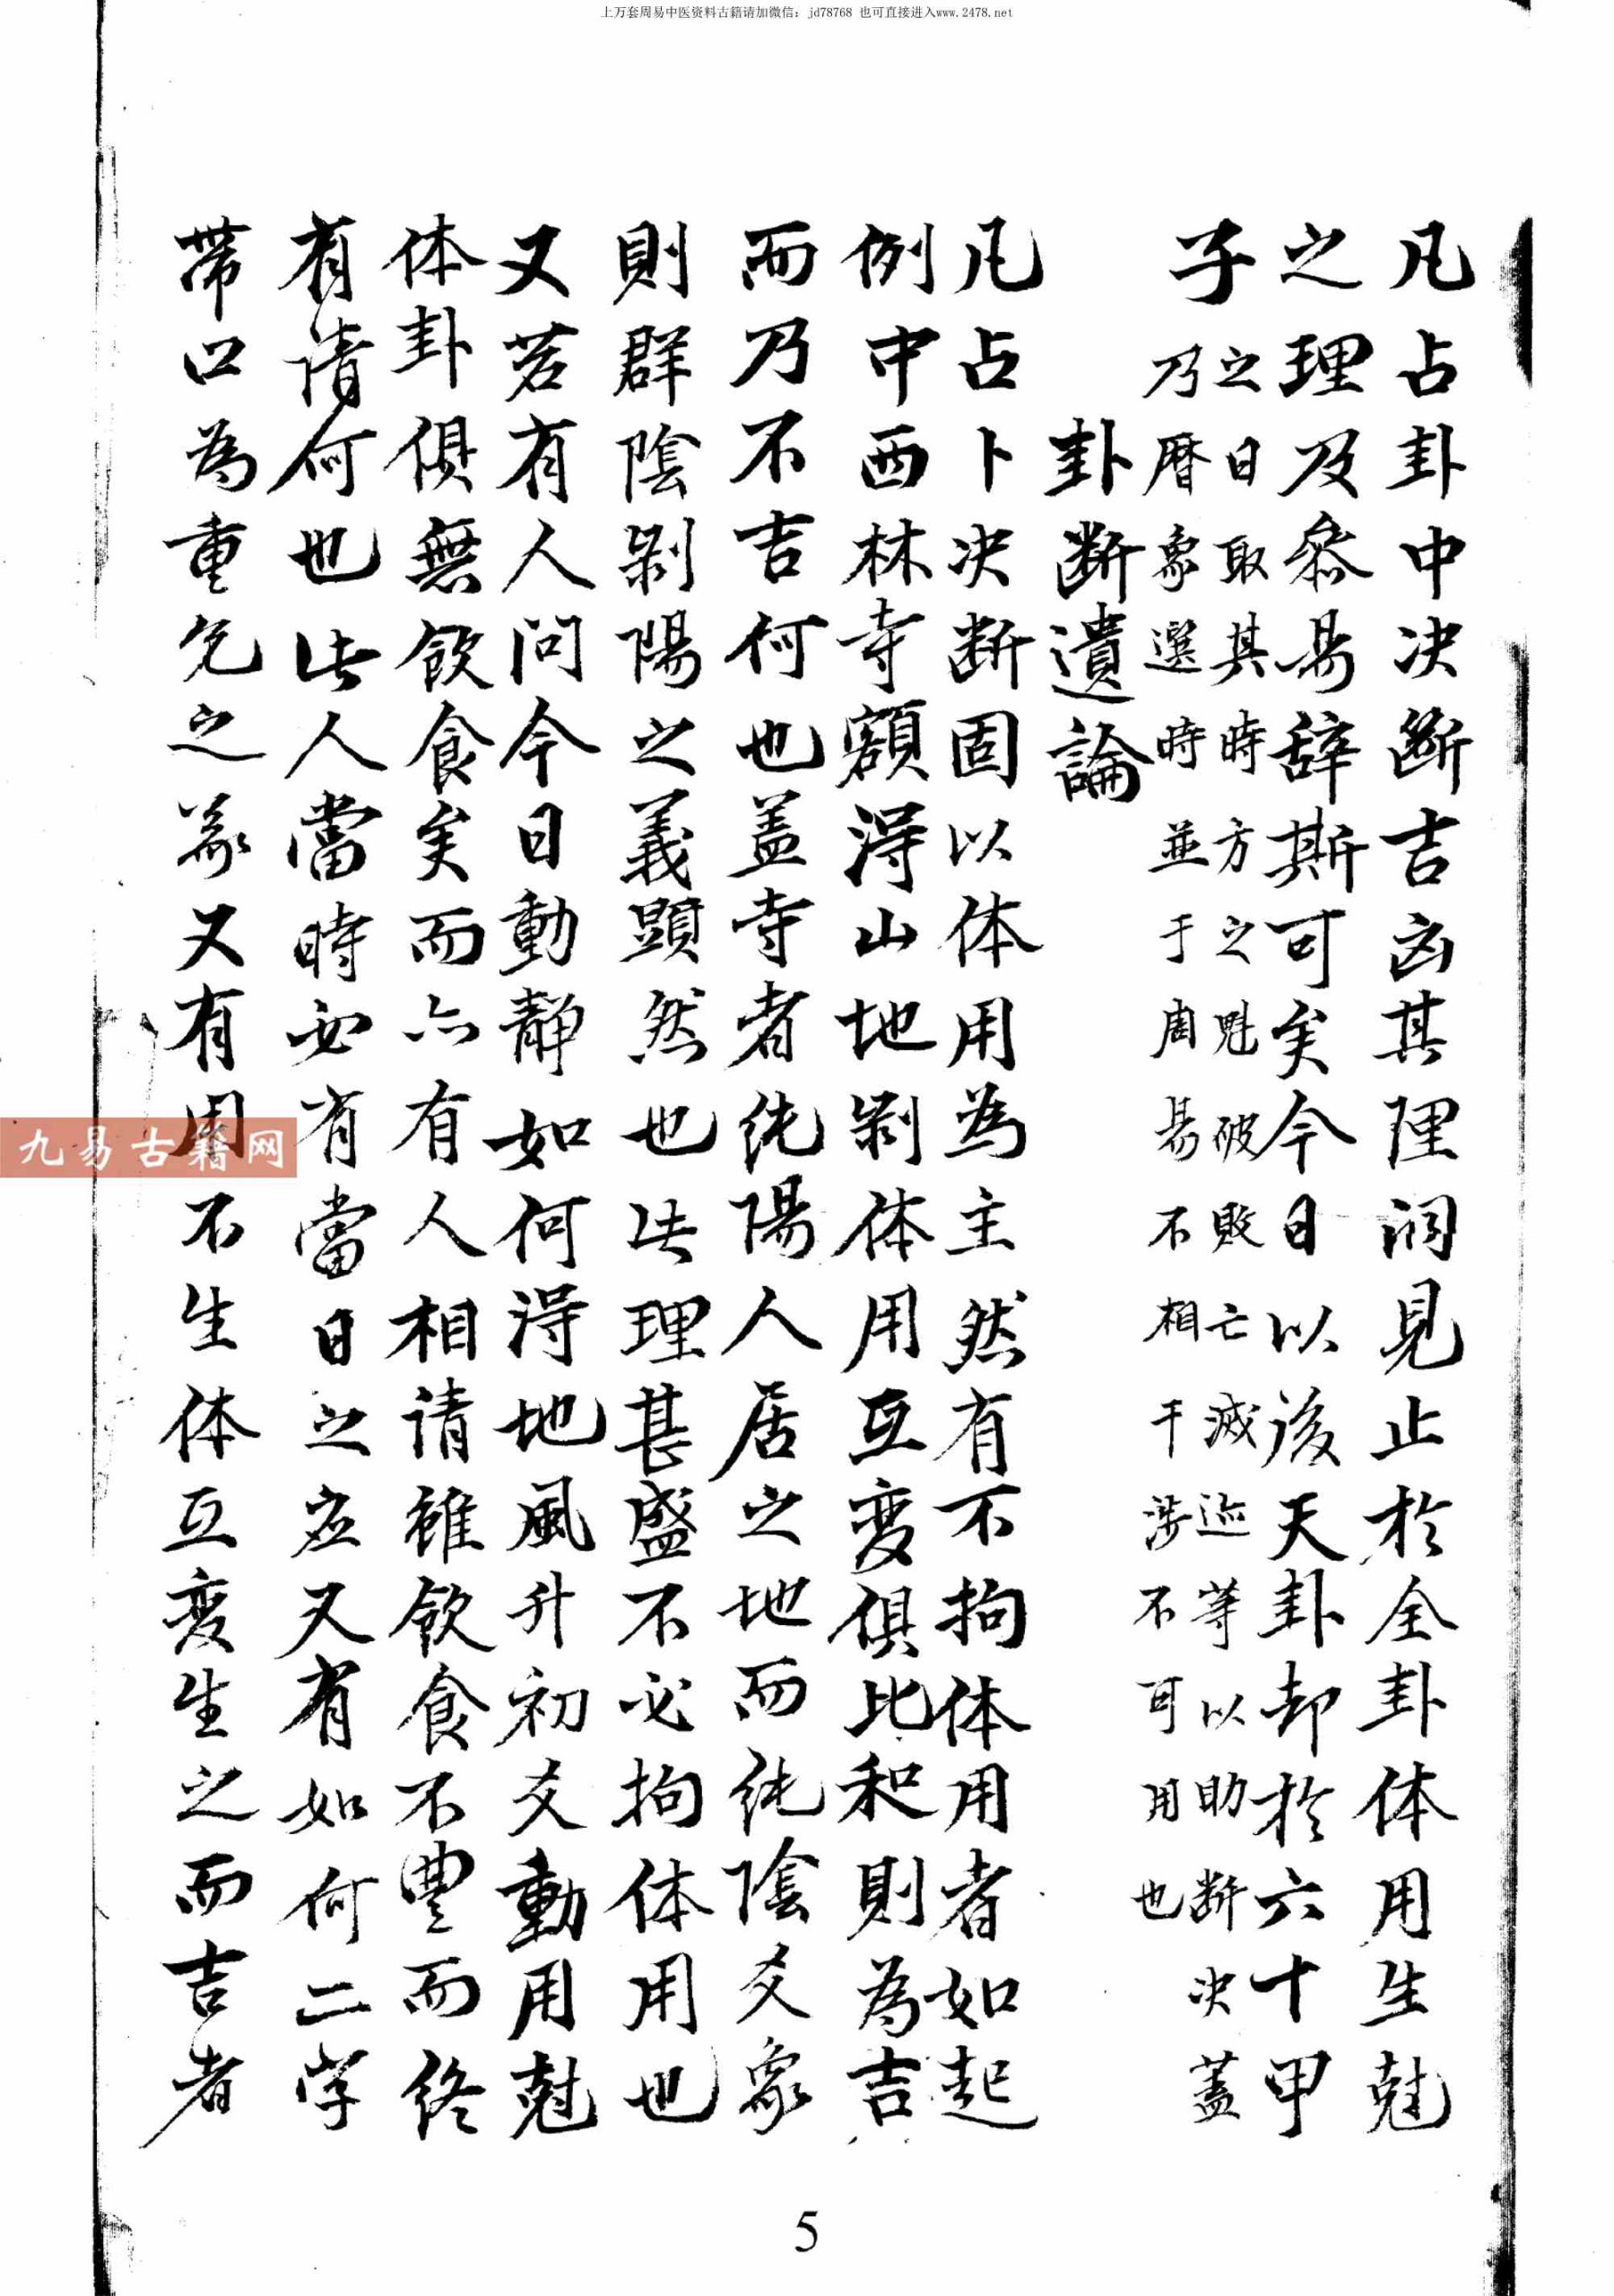 上万套周易中医资料古籍请加微信：jd78768 也可直接进入www.2478.net
凡占卦中决断吉凶其理洞見止於全卦体用生尅
之理及叅易辞斯可矣今日以後天卦却於六十甲
子之日取其時方之魁破敗亡滅迹等以助断决蓋
乃曆象選時並于周易不相干涉不可用也
卦断遺論
凡占卜决断固以体用為主然有不拘体用者如起
例中西林寺額淂山地剥体用互変俱比和則為吉
而乃不吉何也盖寺者纯陽人居之地而纯陰爻象
則群陰剥陽之義顕然也此理甚盛不必拘体用也
又若有人问今日動静如何淂地風升初爻動用尅
体卦俱無飲食矣而亦有人相请雖飲食不豊而终
有请何也此人當時必有當日之应又有如何二字
带口為重兌之義又有用不生体互変生之而吉者
九易古籍网
5